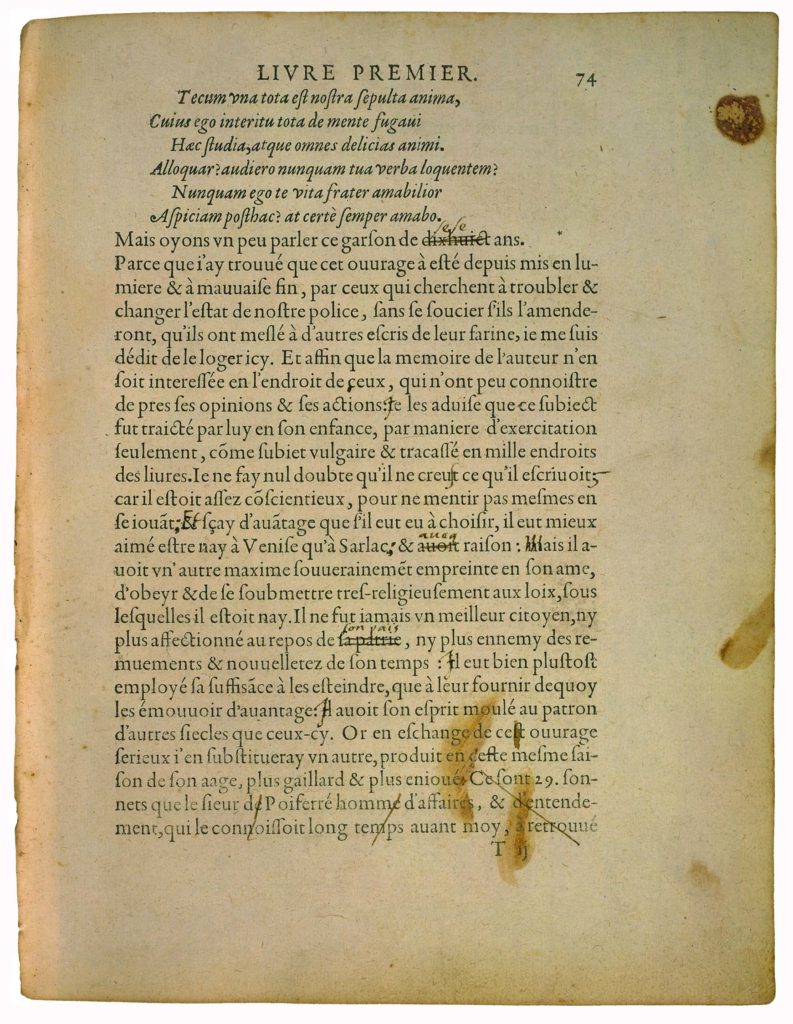 LIVRE PREMIER. 74
Tecum vna tota eſt noſtra ſepulta anima,
Cuius ego interitu tota de mente fugaui
Hæc ſtudia, atque omnes delicias animi.
Alloquar? audiero nunquam tua verba loquentem?
Nunquam ego te vita frater amabilior
Aſpiciam poſthac? at certè ſemper amabo.
ſeſe
Mais oyons vn peu parler ce garſon de dixhuict ans.
Parce que i'ay trouué que cet ouurage à eſté depuis mis en lu-
miere & à mauuaiſe fin, par ceux qui cherchent à troubler &
changer l'eſtat de noſtre police, ſans ſe ſoucier s'ils l'amende-
ront, qu'ils ont meſlé à d'autres eſcris de leur farine, ie me ſuis
dédit de le loger icy. Et affin que la memoire de l'auteur n'en
ſoit intereſſée en l'endroit de ceux, qui n'ont peu connoiſtre
de pres ſes opinions & ſes actions: Ie les aduiſe que ce ſubiect
fut traicté par luy en ſon enfance, par maniere d'exercitation
ſeulement, cõme ſubiet vulgaire & tracaſſé en mille endroits
des liures. Ie ne fay nul doubte qu'il ne creuſt ce qu'il eſcriuoit,
car il eſtoit aſſez cõſcientieux, pour ne mentir pas meſmes en
ſe iouãt: Et ſçay d'auãtage que s'il eut eu à choiſir, il eut mieux
aueq
aimé eſtre nay à Veniſe qu'à Sarlac, & auoit raiſon: Mais il a-
uoit vn' autre maxime ſouuerainemẽt empreinte en ſon ame,
d'obeyr & de ſe ſoubmettre treſ-religieuſement aux loix, ſous
leſquelles il eſtoit nay. Il ne fut iamais vn meilleur citoyen, ny
ſon païs
plus affectionné au repos de ſa patrie, ny plus ennemy des re-
muements & nouuelletez de ſon temps: Il eut bien pluſtoſt
employé ſa ſuffiſãce à les eſteindre, que à leur fournir dequoy
les émouuoir d'auantage: Il auoit ſon eſprit moulé au patron
d'autres ſiecles que ceux-cy. Or en eſchange de ceſt ouurage
ſerieux i'en ſubſtitueray vn autre, produit en ceſte meſme ſai-
ſon de ſon aage, plus gaillard & plus enioué. Ce ſont 29. ſon-
nets que le ſieur de Poiferré homme d'affaires, & d'entende-
ment, qui le connoiſſoit long temps auant moy, a retrouué
T ij